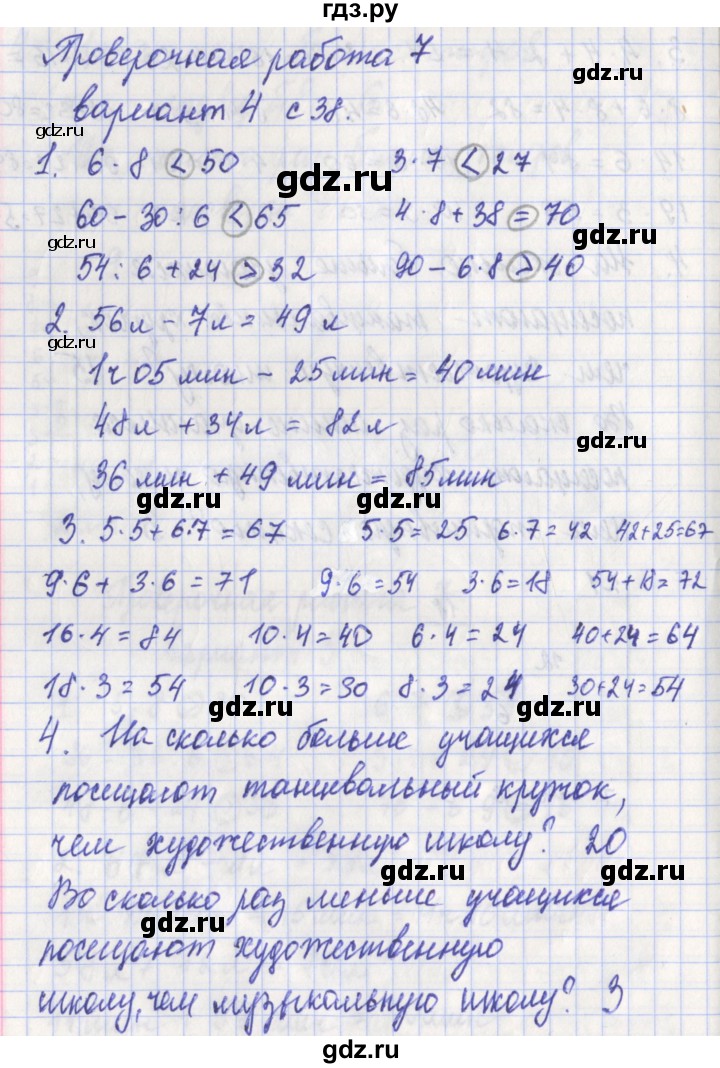 гдз.ру
Проверочная работа 7
вариант 4 с 38.
gdz.ru
gdz.ru
1. 6·8 < 50 3·7 < 27
gdz.ru
60 - 30 : 6 < 65 4·8 + 38 = 70
gdz.ru
gdz.ru
54 : 6 + 24 > 32 90 - 6·8 > 40
2. 56л - 7л = 49 л
gdz.ru
1ч 05мин - 25мин = 40мин
48л + 34л = 82л
gdz.ru
36мин + 49 мин = 85мин
gdz.ru
gdz.ru
3. 5·5 + 6·7 = 67 5·5 = 25 6·7 = 42 42+25=67
9·6 + 3·6 = 71 9·6 = 54 3·6 = 18 54+18= 72
gdz.ru
gdz.ru
16·4 = 84 10·4 = 40 6·4 = 24 40+24 = 64
18·3 = 54 10·3 = 30 8·3 = 24 30+24 = 54
gdz.ru
gdz.ru
4. На сколько больше учащихся
посещают танцевальный кружок,
gdz.ru
чем художественную школу? 20
gdz.ru
Во сколько раз меньше учащихся
gdz.ru
посещают художественную
gdz.ru
школу, чем музыкальную школу? 3
gdz.ru
gdz.ru